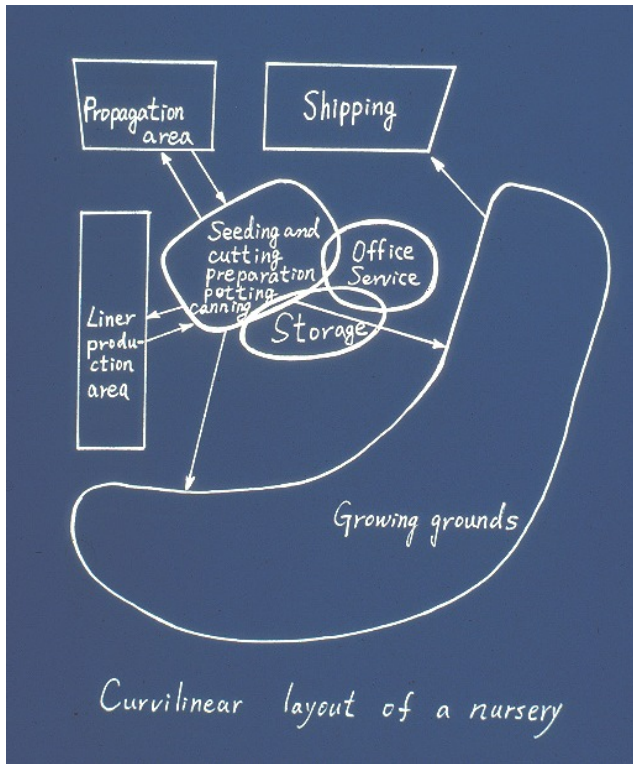 Propagation
area
Shipping
Seeding and
cutting
preparation
potting
canning
Office
Service
Storage
Liner
produ-
ction
area
Growing grounds
Curvilinear layout of a nursery